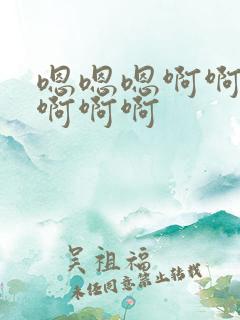 嗯嗯嗯啊啊
啊啊啊
吴祖福
未经同意禁止转载